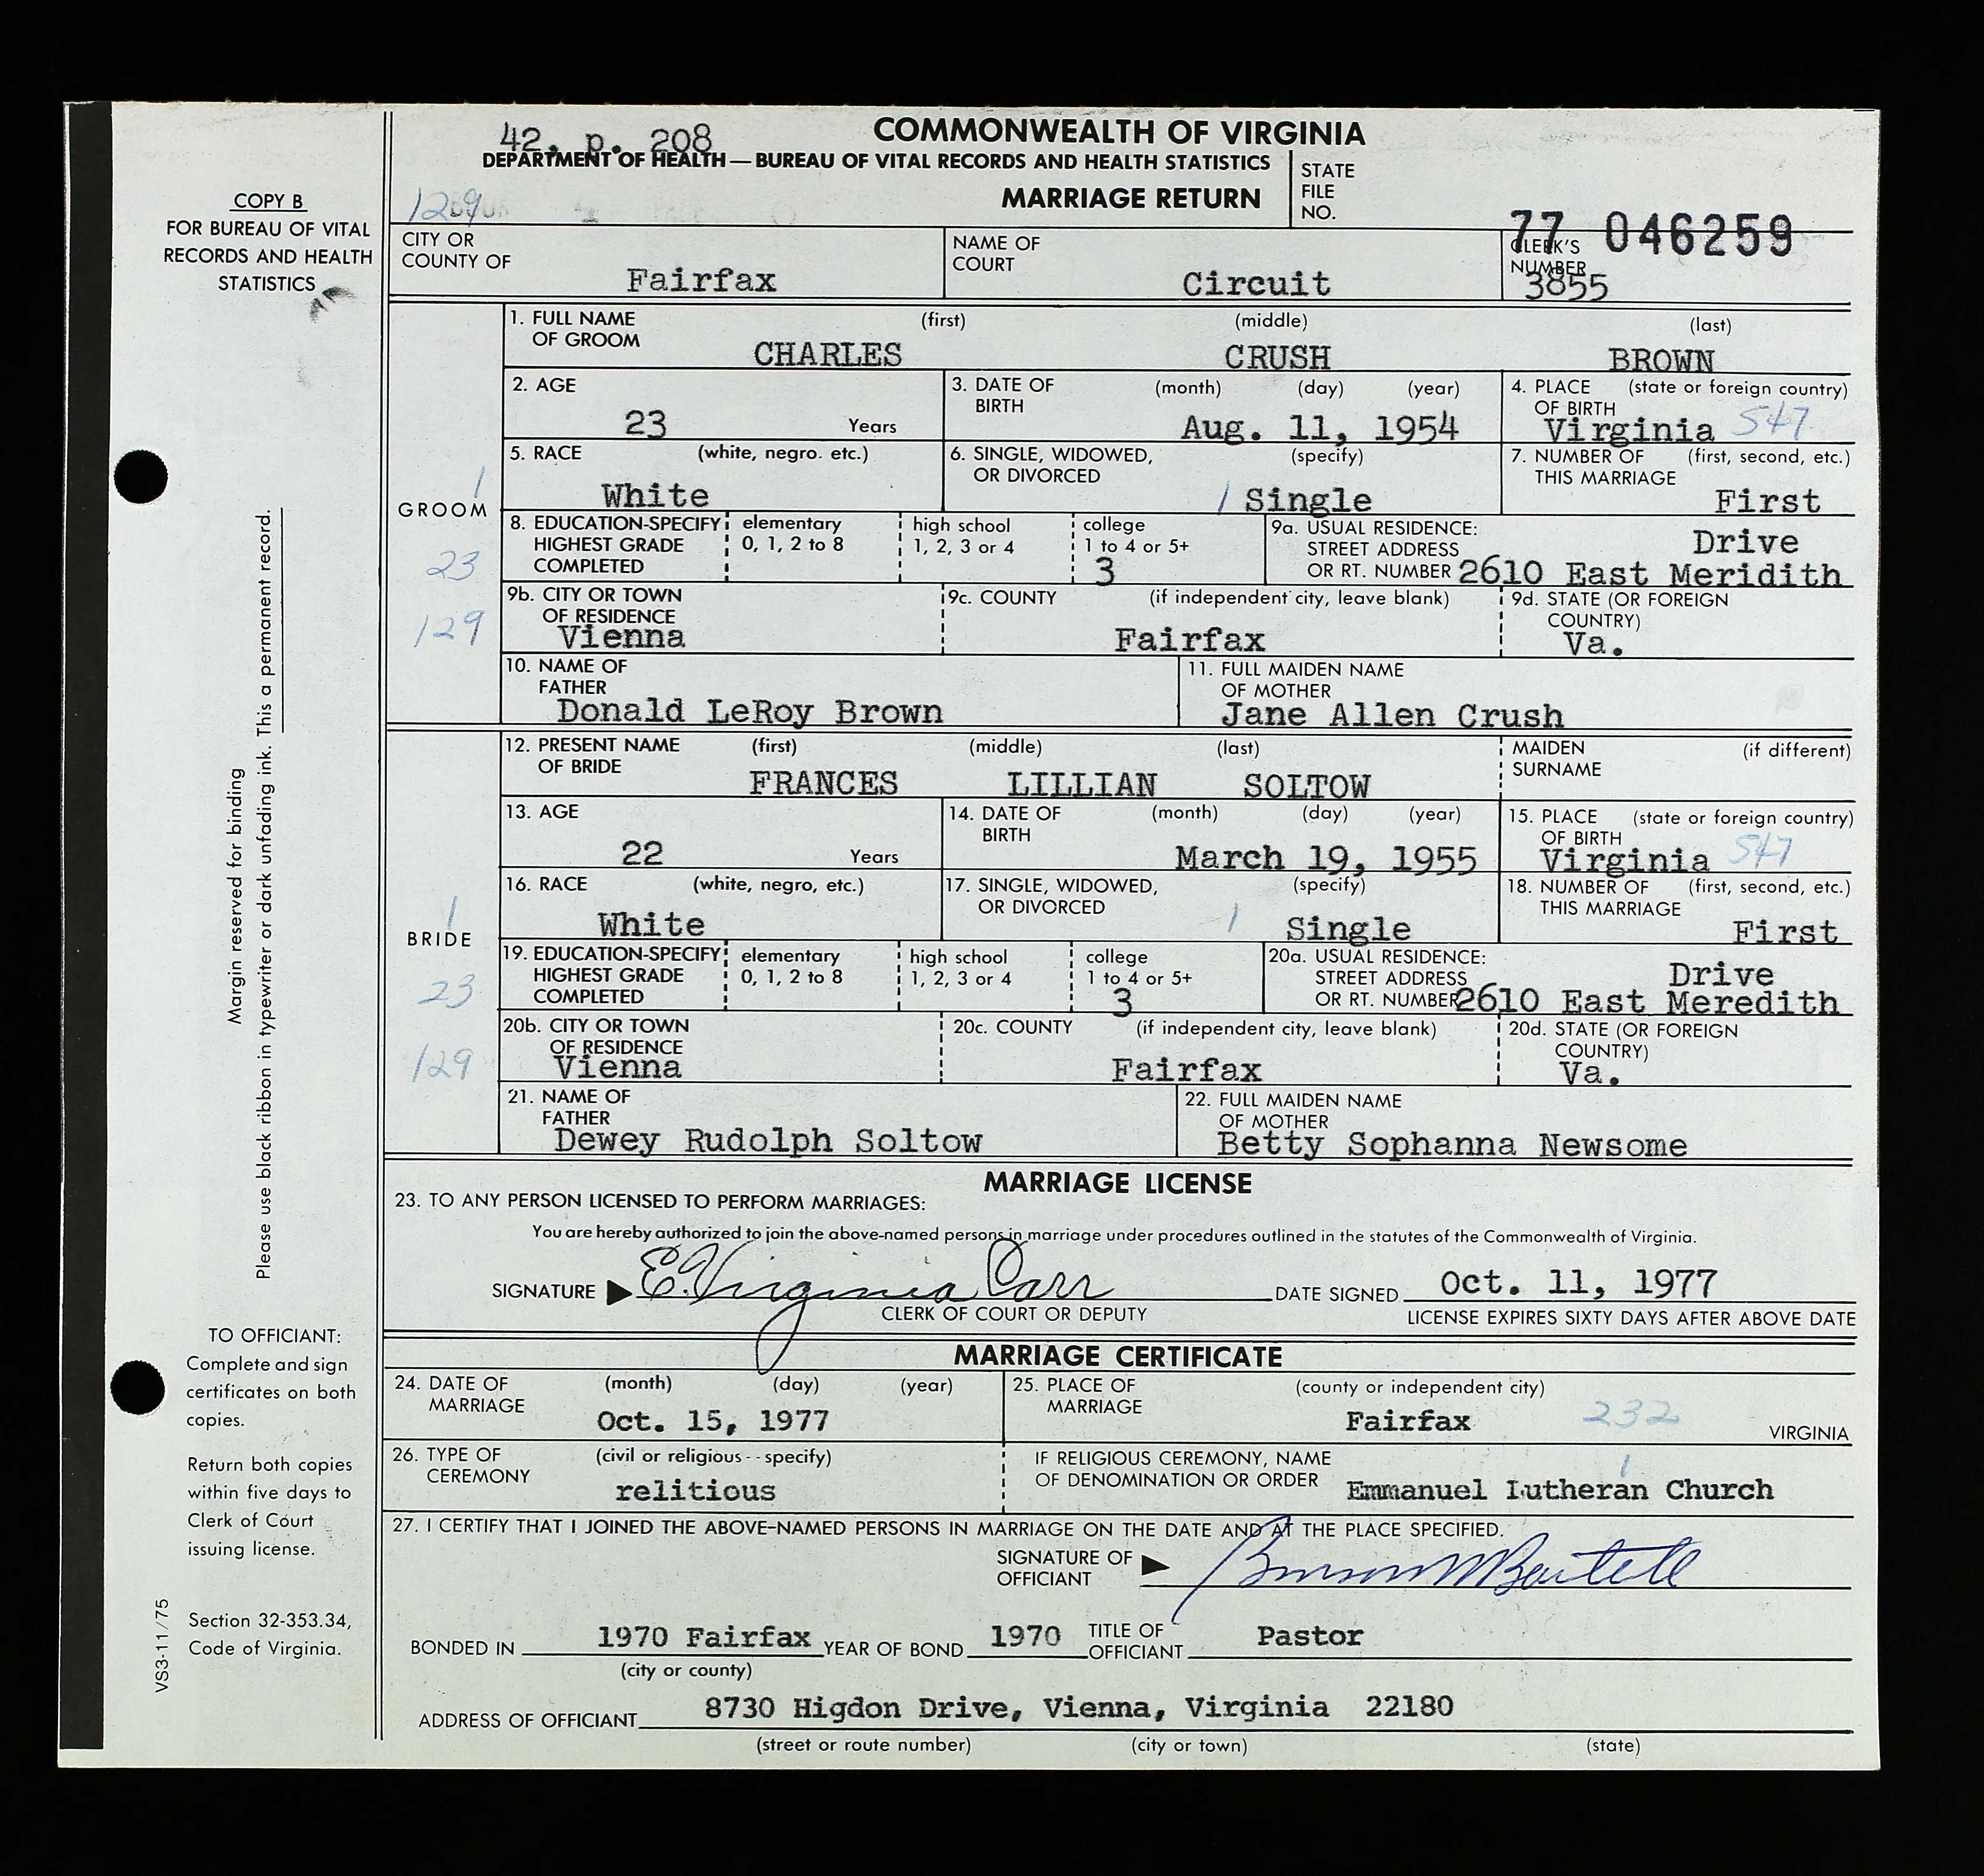 42, p. 208
COMMONWEALTH OF VIRGINIA
DEPARTMENT OF HEALTH — BUREAU OF VITAL RECORDS AND HEALTH STATISTICS
129
MARRIAGE RETURN
STATE FILE NO.
77 046259
COPY B
FOR BUREAU OF VITAL
RECORDS AND HEALTH
STATISTICS
CITY OR COUNTY OF Fairfax
NAME OF COURT Circuit
CLERK'S NUMBER 3855
GROOM
1
23
129
1. FULL NAME OF GROOM (first) (middle) (last)
CHARLES CRUSH BROWN
2. AGE 23 Years
3. DATE OF BIRTH (month) (day) (year)
Aug. 11, 1954
4. PLACE OF BIRTH (state or foreign country)
Virginia 547
5. RACE (white, negro. etc.)
White
6. SINGLE, WIDOWED, OR DIVORCED (specify)
1 Single
7. NUMBER OF THIS MARRIAGE (first, second, etc.)
First
8. EDUCATION-SPECIFY HIGHEST GRADE COMPLETED
elementary 0, 1, 2 to 8
high school 1, 2, 3 or 4
college 1 to 4 or 5+
3
9a. USUAL RESIDENCE: STREET ADDRESS OR RT. NUMBER
Drive
2610 East Meridith
9b. CITY OR TOWN OF RESIDENCE
Vienna
9c. COUNTY (if independent city, leave blank)
Fairfax
9d. STATE (OR FOREIGN COUNTRY)
Va.
10. NAME OF FATHER
Donald LeRoy Brown
11. FULL MAIDEN NAME OF MOTHER
Jane Allen Crush
BRIDE
1
23
129
12. PRESENT NAME OF BRIDE (first) (middle) (last)
FRANCES LILLIAN SOLTOW
MAIDEN SURNAME (if different)
13. AGE 22 Years
14. DATE OF BIRTH (month) (day) (year)
March 19, 1955
15. PLACE OF BIRTH (state or foreign country)
Virginia 547
16. RACE (white, negro, etc.)
White
17. SINGLE, WIDOWED, OR DIVORCED (specify)
1 Single
18. NUMBER OF THIS MARRIAGE (first, second, etc.)
First
19. EDUCATION-SPECIFY HIGHEST GRADE COMPLETED
elementary 0, 1, 2 to 8
high school 1, 2, 3 or 4
college 1 to 4 or 5+
3
20a. USUAL RESIDENCE: STREET ADDRESS OR RT. NUMBER
Drive
2610 East Meredith
20b. CITY OR TOWN OF RESIDENCE
Vienna
20c. COUNTY (if independent city, leave blank)
Fairfax
20d. STATE (OR FOREIGN COUNTRY)
Va.
21. NAME OF FATHER
Dewey Rudolph Soltow
22. FULL MAIDEN NAME OF MOTHER
Betty Sophanna Newsome
MARRIAGE LICENSE
23. TO ANY PERSON LICENSED TO PERFORM MARRIAGES:
You are hereby authorized to join the above-named persons in marriage under procedures outlined in the statutes of the Commonwealth of Virginia.
SIGNATURE E. Virginia Carr DATE SIGNED Oct. 11, 1977
CLERK OF COURT OR DEPUTY
LICENSE EXPIRES SIXTY DAYS AFTER ABOVE DATE
MARRIAGE CERTIFICATE
24. DATE OF MARRIAGE (month) (day) (year)
Oct. 15, 1977
25. PLACE OF MARRIAGE (county or independent city)
Fairfax 232 VIRGINIA
26. TYPE OF CEREMONY (civil or religious - - specify)
relitious
IF RELIGIOUS CEREMONY, NAME OF DENOMINATION OR ORDER
1
Emmanuel Lutheran Church
27. I CERTIFY THAT I JOINED THE ABOVE-NAMED PERSONS IN MARRIAGE ON THE DATE AND AT THE PLACE SPECIFIED.
SIGNATURE OF OFFICIANT
BONDED IN 1970 Fairfax YEAR OF BOND 1970 TITLE OF OFFICIANT Pastor
(city or county)
ADDRESS OF OFFICIANT 8730 Higdon Drive, Vienna, Virginia 22180
(street or route number) (city or town) (state)
Margin reserved for binding
Please use black ribbon in typewriter or dark unfading ink. This a permanent record.
TO OFFICIANT:
Complete and sign
certificates on both
copies.
Return both copies
within five days to
Clerk of Court
issuing license.
Section 32-353.34,
Code of Virginia.
VS3-11/75